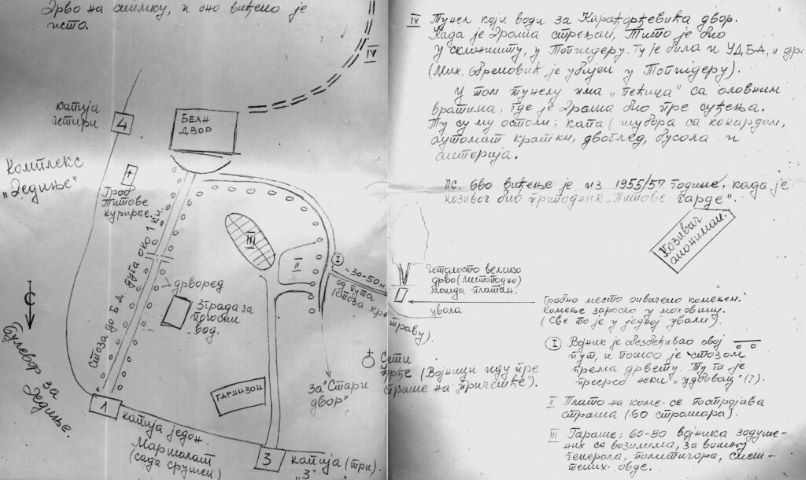 дрво на слици, и оно виђено је
исто.
капија
четири
4
БЕЛИ
ДВОР
IV
Комплекс
„Дедиње"
Гроб
Титове
курирке.
Стаза до Б.Д. дуга око 1 км.
III
II
I
~30-50м.
од пута
(стаза кроз
траву)
дрворед
Зграда за
прости
вод.
С
Булевар за
Дедиње.
ГАРНИЗОН
За „Стари
двор"
1
капија један.
Маршалат
(сада срушен)
3
капија (три).
„3"
IV Тунел који води за Карађорђевића двор.
Када је Дража стрељан, Тито је био
у склоништу, у Топчидеру. Ту је била и УДБА, и др.
(Мих. Обреновић је убијен у Топчидеру).
У том тунелу има „пећица" са оловним
вратима, где је Дража био пре суђења.
Ту су му остали: капа (шубара са кокардом,
аутомат кратки, двоглед, бусола и
ПС. Ово виђење је из 1955/57 године, када је
казивач био припадник „Титове гарде".
Казивач
анониман.
дрво (листопадно)
увала
Гробно место оивичено каменом.
Камење зарасло у маховину.
(Све то је у једној ували).
(Војници иду пре
страже на
I Војник је обезбеђивао овај
пут, и пошао је стазом
према дрвету. Ту га је
пресрео неки „удбовац" (?).
II Плато на коме се построjава
стража (60 стражара).
III Гараже; 60-80 војника задуже-
них са возилима, за вожњу
генерала, политичара, смеш-
тених овде.